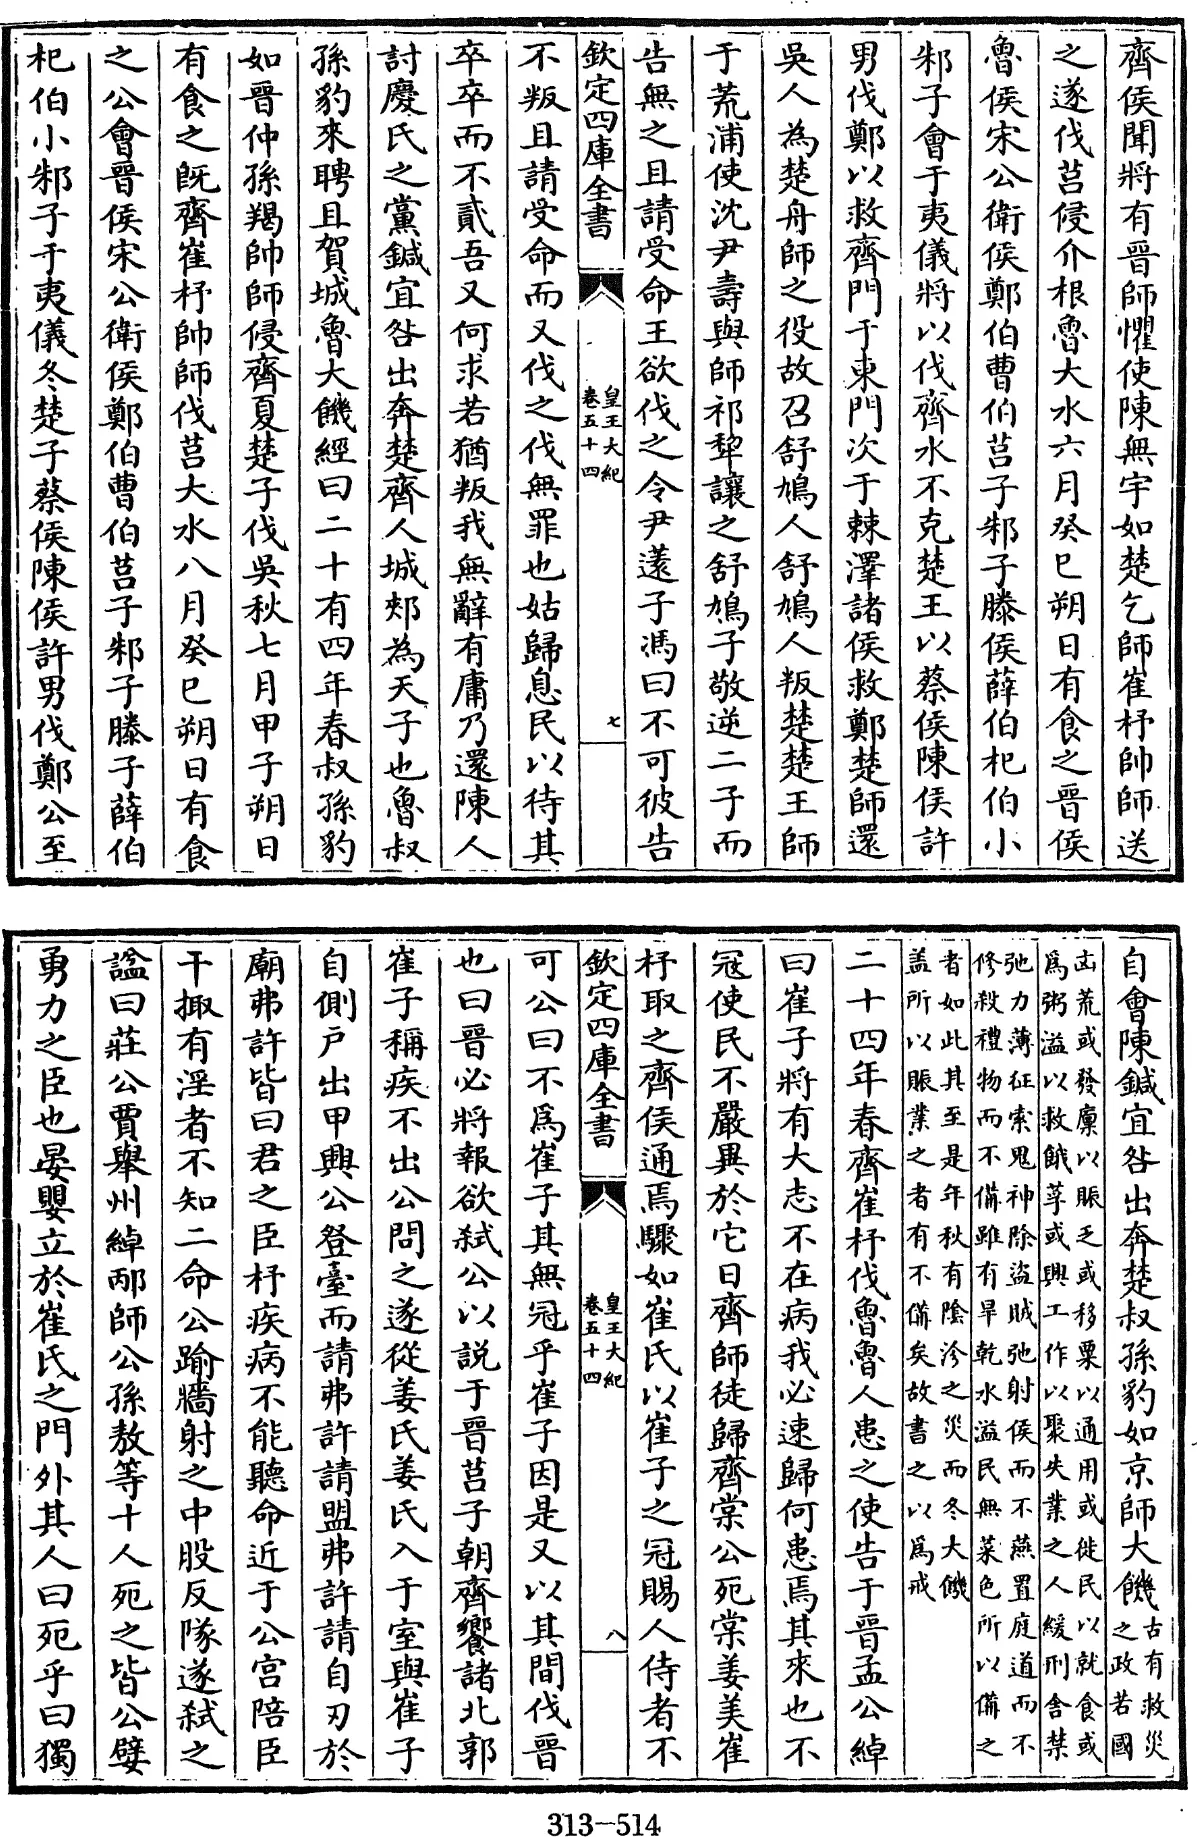 齊侯聞將有晉師懼使陳無宇如楚乞師崔杼帥師送
之遂伐莒侵介根魯大水六月癸巳朔日有食之晉侯
魯侯宋公衛侯鄭伯曹伯莒子邾子滕侯薛伯杞伯小
邾子會于夷儀將以伐齊水不克楚王以蔡侯陳侯許
男伐鄭以救齊門于東門次于棘澤諸侯救鄭楚師還
吳人為楚舟師之役故召舒鳩人舒鳩人叛楚楚王師
于荒浦使沈尹壽與師祁犂讓之舒鳩子敬逆二子而
告無之且請受命王欲伐之令尹薳子馮曰不可彼告
欽定四庫全書
皇王大紀
卷五十四
七
不叛且請受命而又伐之伐無罪也姑歸息民以待其
卒卒而不貳吾又何求若猶叛我無辭有庸乃還陳人
討慶氏之黨鍼宜咎出奔楚齊人城郟為天子也魯叔
孫豹來聘且賀城魯大饑經曰二十有四年春叔孫豹
如晉仲孫羯帥師侵齊夏楚子伐吳秋七月甲子朔日
有食之旣齊崔杼帥師伐莒大水八月癸巳朔日有食
之公會晉侯宋公衛侯鄭伯曹伯莒子邾子滕子薛伯
杞伯小邾子于夷儀冬楚子蔡侯陳侯許男伐鄭公至
自會陳鍼宜咎出奔楚叔孫豹如京師大饑古有救災
之政若國
凶荒或發廩以賑乏或移粟以通用或徙民以就食或
爲粥溢以救餓莩或興工作以聚失業之人緩刑舍禁
弛力薄征索鬼神除盜賊弛射侯而不燕置庭道而不
修殺禮物而不備雖有旱乾水溢民無菜色所以備之
者如此其至是年秋有陰沴之災而冬大饑
盖所以賑業之者有不備矣故書之以爲戒
二十四年春齊崔杼伐魯魯人患之使告于晉孟公綽
曰崔子將有大志不在病我必速歸何患焉其來也不
冦使民不嚴異於它日齊師徒歸齊棠公死棠姜美崔
杼取之齊侯通焉驟如崔氏以崔子之冠賜人侍者不
欽定四庫全書
皇王大紀
卷五十四
八
可公曰不爲崔子其無冠乎崔子因是又以其間伐晉
也曰晉必將報欲弒公以説于晉莒子朝齊饗諸北郭
崔子稱疾不出公問之遂從姜氏姜氏入于室與崔子
自側戶出甲興公登臺而請弗許請盟弗許請自刃於
廟弗許皆曰君之臣杼疾病不能聽命近于公宮陪臣
干掫有淫者不知二命公踰牆射之中股反隊遂弒之
諡曰莊公賈舉州綽邴師公孫敖等十人死之皆公嬖
勇力之臣也晏嬰立於崔氏之門外其人曰死乎曰獨
313-514